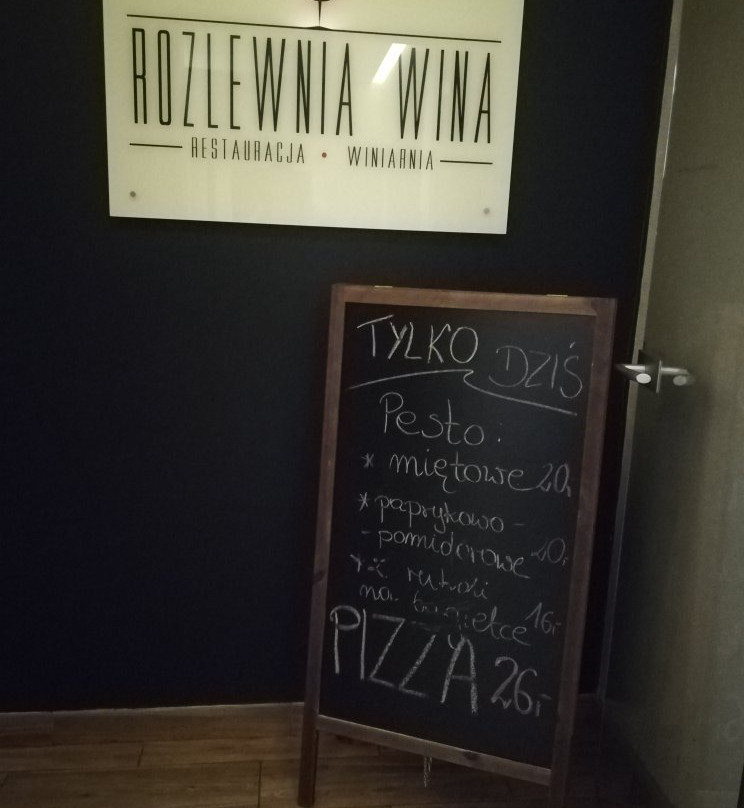 ROZLEWNIA WINA
RESTAURACJA • WINIARNIA
TYLKO DZIŚ
Pesto:
* miętowe 20,-
* paprykowo -
- pomidorowe 20,-
* z rukoli
na bagietce 16,-
PIZZA 26,-